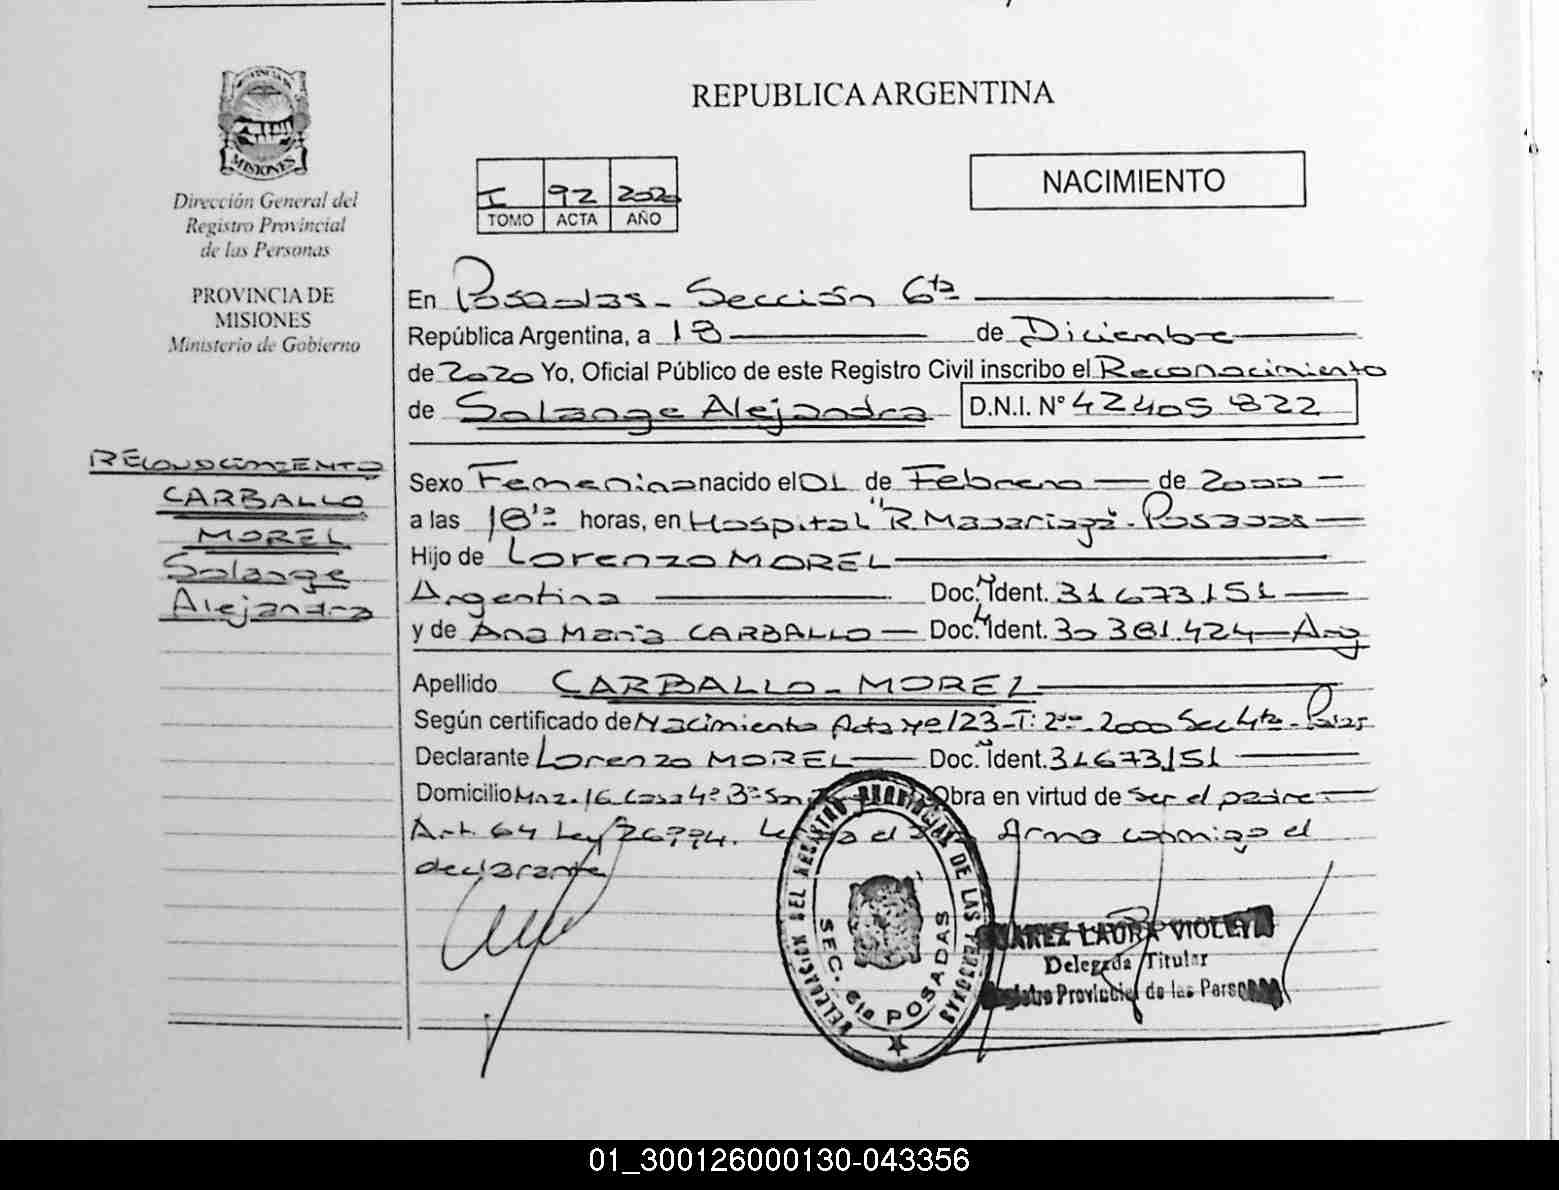 PROVINCIA DE
MISIONES
Dirección General del
Registro Provincial
de las Personas
PROVINCIA DE
MISIONES
Ministerio de Gobierno
RECONOCIMIENTO
CARBALLO
MOREL
Solange
Alejandra
REPUBLICA ARGENTINA
I 92 2020
TOMO ACTA AÑO
NACIMIENTO
En Posadas - Sección 6ta
República Argentina, a 18 de Diciembre
de 2020 Yo, Oficial Público de este Registro Civil inscribo el Reconocimiento
de Solange Alejandra D.N.I. N° 42405822
Sexo Femenino nacido el 01 de Febrero de 2000
a las 18 horas, en Hospital "R. Madariaga - Posadas
Hijo de Lorenzo MOREL
Argentina Doc. Ident. 31673151
y de Ana María CARBALLO Doc. Ident. 30 381.424 Arg
Apellido CARBALLO - MOREL
Según certificado de Nacimiento Acta Nº 123 - T: 2000 Sec 4ta - Pdas
Declarante Lorenzo MOREL Doc. Ident. 31673151
Domicilio Mnz. 16 Casa 4º Bº San Obra en virtud de ser el padre
Art. 64 Ley 26994. el firma conmigo el
declarante
DELEGACION DEL REGISTRO PROVINCIAL DE LAS PERSONAS
SEC. 6ta POSADAS
LAURA VIOLETA
Delegada Titular
Registro Provincial de las Personas
01_300126000130-043356